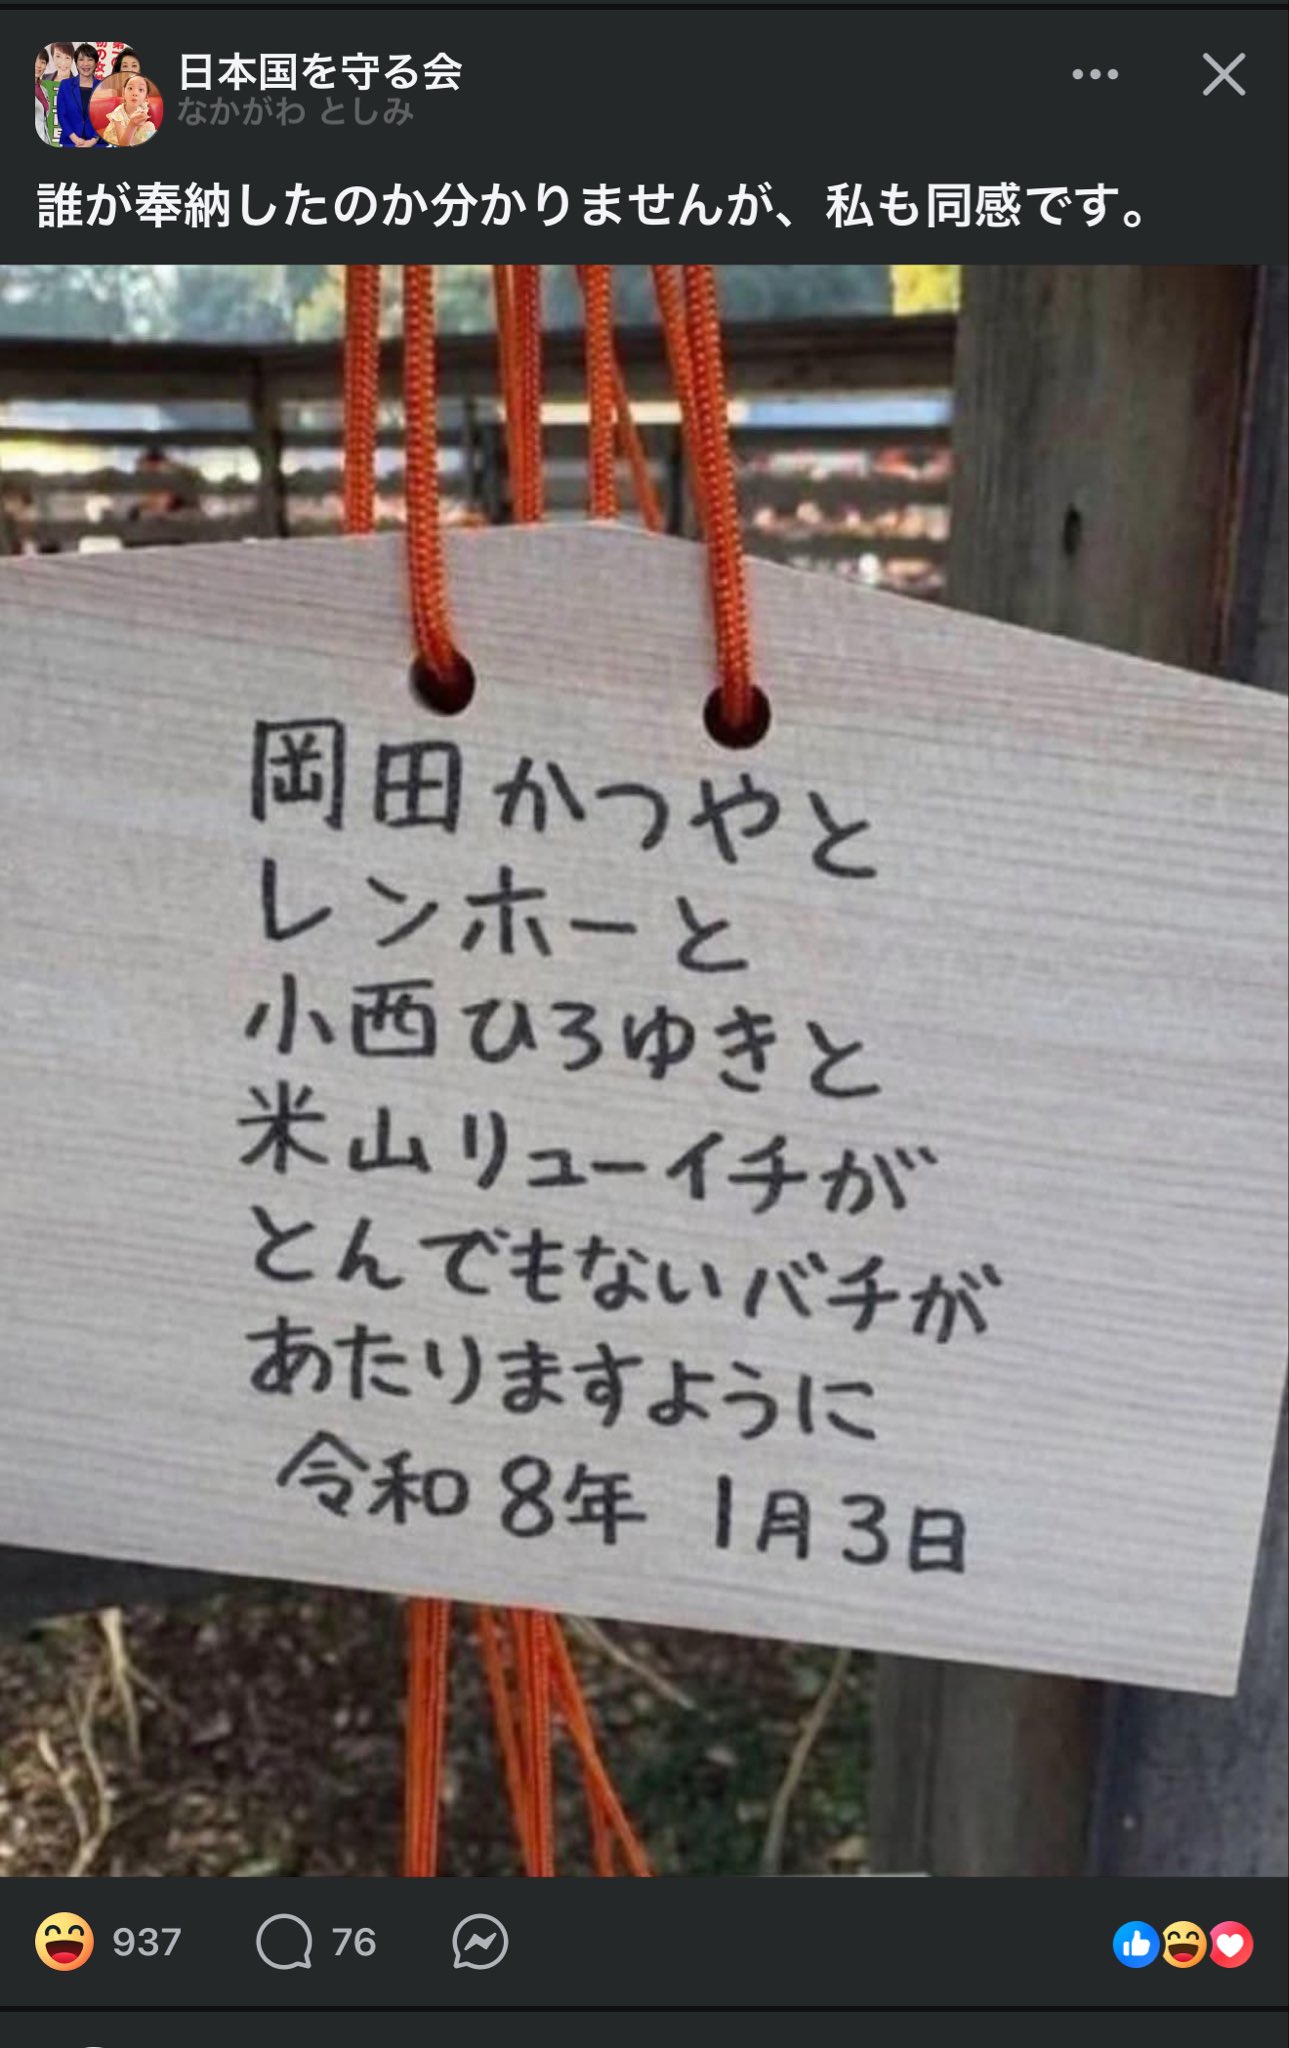 日本国を守る会
なかがわ としみ
誰が奉納したのか分かりませんが、私も同感です。
岡田かつやと
レンホーと
小西ひろゆきと
米山リューイチが
とんでもないバチが
あたりますように
令和8年 1月3日
937
76